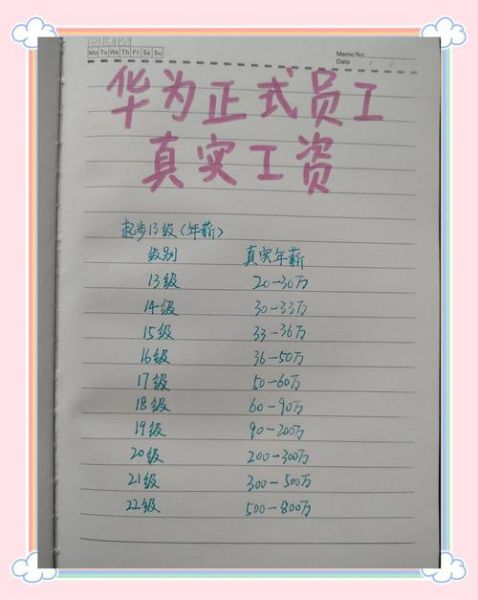 Mo Tu We Th Fr Sa Su
Memo No.
Date / /
华为正式员工
真实工资
起步13级(年薪)
级别 真实年薪
13级 20-30万
14级 30-33万
15级 33-36万
16级 36-50万
17级 50-60万
18级 60-90万
19级 90-200万
20级 200-300万
21级 300-500万
22级 500-800万